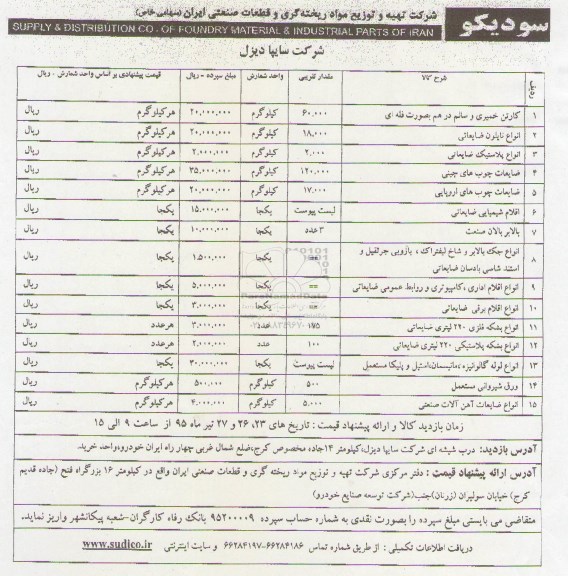 سودیکو
شرکت تهیه و توزیع مواد ریخته گری و قطعات صنعتی ایران (سهامی خاص)
SUPPLY & DISTRIBUTION CO. OF FOUNDRY MATERIAL & INDUSTRIAL PARTS OF IRAN
شرکت سایپا دیزل
ردیف شرح کالا مقدار تقریبی واحد شمارش مبلغ سپرده - ریال قیمت پیشنهادی بر اساس واحد شمارش . ریال
۱ کارتن خمیری و سالم در هم بصورت فله ای ۶۰.۰۰۰ کیلوگرم ۲۰.۰۰۰.۰۰۰ هرکیلوگرم ریال
۲ انواع نایلون ضایعاتی ۱۸.۰۰۰ کیلوگرم ۲۰.۰۰۰.۰۰۰ هرکیلوگرم ریال
۳ انواع پلاستیک ضایعاتی ۲.۰۰۰ کیلوگرم ۲.۰۰۰.۰۰۰ هرکیلوگرم ریال
۴ ضایعات چوب های چینی ۱۴۰.۰۰۰ کیلوگرم ۳۵.۰۰۰.۰۰۰ هرکیلوگرم ریال
۵ ضایعات چوب های اروپایی ۱۷.۰۰۰ کیلوگرم ۲۰.۰۰۰.۰۰۰ هرکیلوگرم ریال
۶ اقلام شیمیایی ضایعاتی لیست پیوست یکجا ۱۵.۰۰۰.۰۰۰ یکجا ریال
۷ بالابر بالان صنعت ۳ عدد یکجا ۱۰.۰۰۰.۰۰۰ یکجا ریال
۸ انواع جک بالابر و شاخ لیفتراک ، بازویی جرثقیل و استند شاسی بادسان ضایعاتی == یکجا ۱.۵۰۰.۰۰۰ یکجا ریال
۹ انواع اقلام اداری ،کامپیوتری و روابط عمومی ضایعاتی == یکجا ۵.۰۰۰.۰۰۰ یکجا ریال
۱۰ انواع اقلام برقی ضایعاتی == یکجا ۳.۰۰۰.۰۰۰ یکجا ریال
۱۱ انواع بشکه فلزی ۲۲۰ لیتری ضایعاتی ۱۷۵ عدد ۳.۰۰۰.۰۰۰ هرعدد ریال
۱۲ انواع بشکه پلاستیکی ۲۲۰ لیتری ضایعاتی ۱۰۰ عدد ۲.۰۰۰.۰۰۰ هرعدد ریال
۱۳ انواع لوله گالوانیزه ،مانیسمان،استیل و پلیکا مستعمل لیست پیوست یکجا ۳۰.۰۰۰.۰۰۰ یکجا ریال
۱۴ ورق شیروانی مستعمل ۵۰۰ کیلوگرم ۵۰۰.۰۰۰ هرکیلوگرم ریال
۱۵ انواع ضایعات آهن آلات صنعتی ۵.۰۰۰ کیلوگرم ۴.۰۰۰.۰۰۰ هرکیلوگرم ریال
زمان بازدید کالا و ارائه پیشنهاد قیمت : تاریخ های ۲۳، ۲۶ و ۲۷ تیر ماه ۹۵ از ساعت ۹ الی ۱۵
آدرس بازدید: درب شیشه ای شرکت سایپا دیزل،کیلومتر ۱۴جاده مخصوص کرج،ضلع شمال غربی چهار راه ایران خودرو،واحد خرید.
آدرس ارائه پیشنهاد قیمت : دفتر مرکزی شرکت تهیه و توزیع مواد ریخته گری و قطعات صنعتی ایران واقع در کیلومتر ۱۶ بزرگراه فتح (جاده قدیم
کرج) خیابان سولیران (زرنان)جنب(شرکت توسعه صنایع خودرو)
متقاضی می بایستی مبلغ سپرده را بصورت نقدی به شماره حساب سپرده ۹۵۲۰۰۰۰۹ بانک رفاه کارگران-شعبه پیکانشهر واریز نماید.
دریافت اطلاعات تکمیلی : از طریق شماره تماس ۶۶۲۸۴۱۸۶-۶۶۲۸۴۱۹۷ و سایت اینترنتی www.sudico.ir